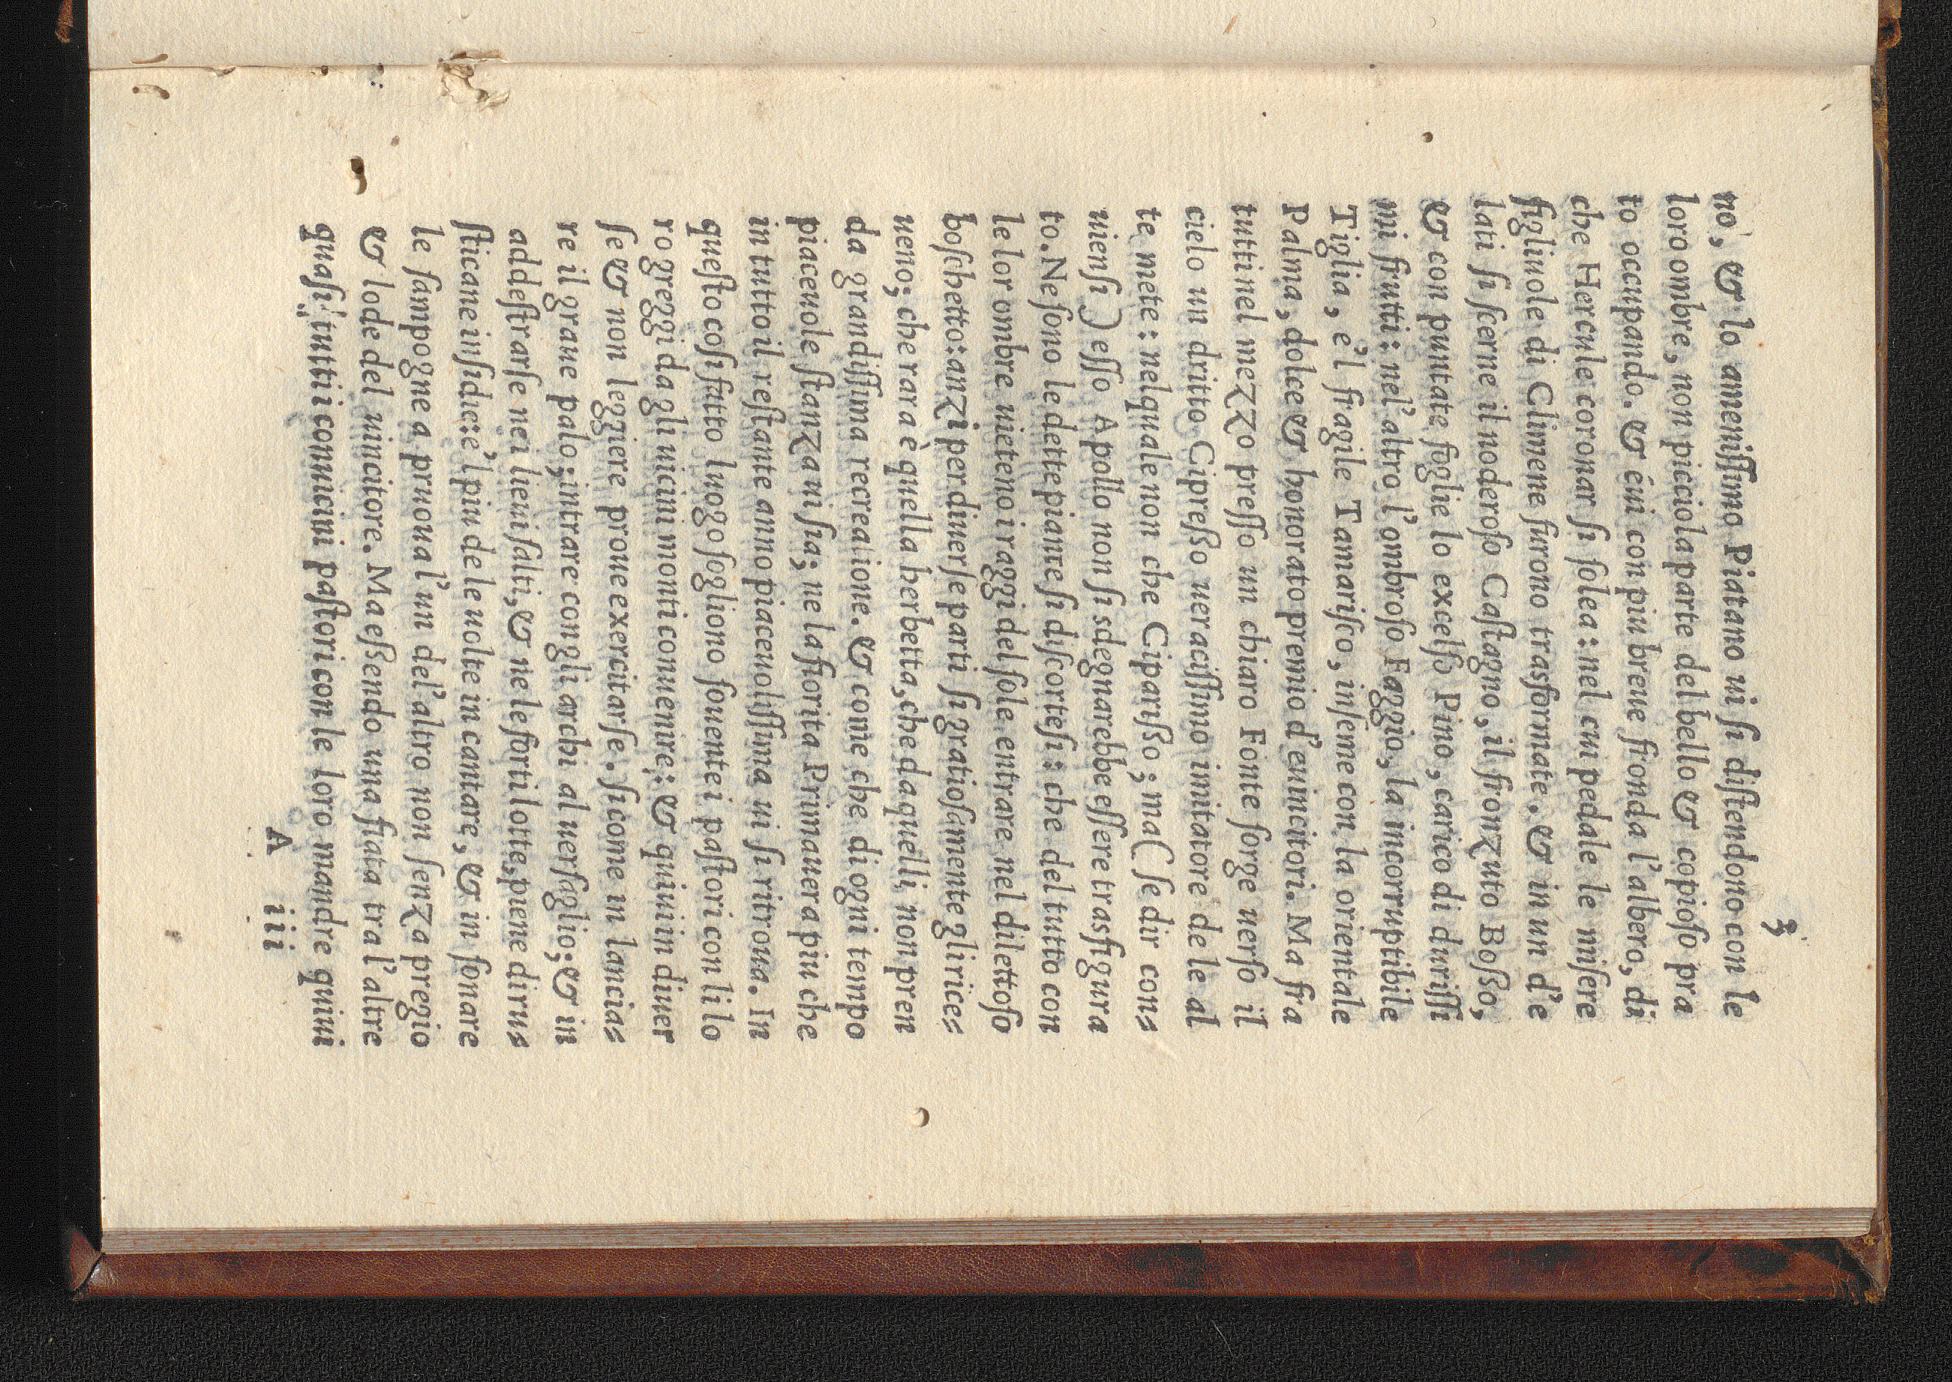 3
no, & lo amenissimo Piatano ui si distendono con le
loro ombre, non picciola parte del bello & copioso pra
to occupando. & eui con piu breue fronda l'albero, di
che Hercule coronar si solea: nel cui pedale le misere
figliuole di Climene furono trasformate. & in un d'e
lati si scerne il noderoso Castagno, il fronzuto Bosso,
& con puntate foglie lo excelso Pino, carico di durissi
mi frutti: nel'altro l'ombroso Faggio, la incorruptibile
Tiglia, e'l fragile Tamarisco, inseme con la orientale
Palma, dolce & honorato premio d'euincitori. Ma fra
tutti nel mezzo presso un chiaro Fonte sorge uerso il
cielo un dritto Cipresso ueracissimo imitatore de le al
te mete: nelquale non che Ciparisso; ma (se dir cons
uiensi) esso Apollo non si sdegnarebbe essere trasfigura
to. Ne sono le dette piante si discortesi: che del tutto con
le lor ombre uieteno i raggi del sole entrare nel dilettoso
boschetto: anzi per diuerse parti si gratiosamente gli rices
ueno; che rara è quella herbetta, che da quelli non pren
da grandissima recreatione. & come che di ogni tempo
piaceuole stanza ui sia; ne la fiorita Primauera piu che
in tutto il restante anno piaceuolissima ui si ritroua. In
questo cosi fatto luogo sogliono souente i pastori con li lo
ro greggi da gli uicini monti conuenire: & quiui in diuer
se & non leggiere proue exercitarse. sicome in lancias
re il graue palo; in trare con gli archi al uersaglio; & in
addestrarse nei lieui salti, & ne le forti lotte, piene di rus
sticane insidie: e'l piu de le uolte in cantare, & in sonare
le sampogne a pruoua l'un del'altro non senza pregio
& lode del uincitore. Ma essendo una fiata tra l'altre
quasi tutti i conuicini pastori con le loro mandre quiui
A iii